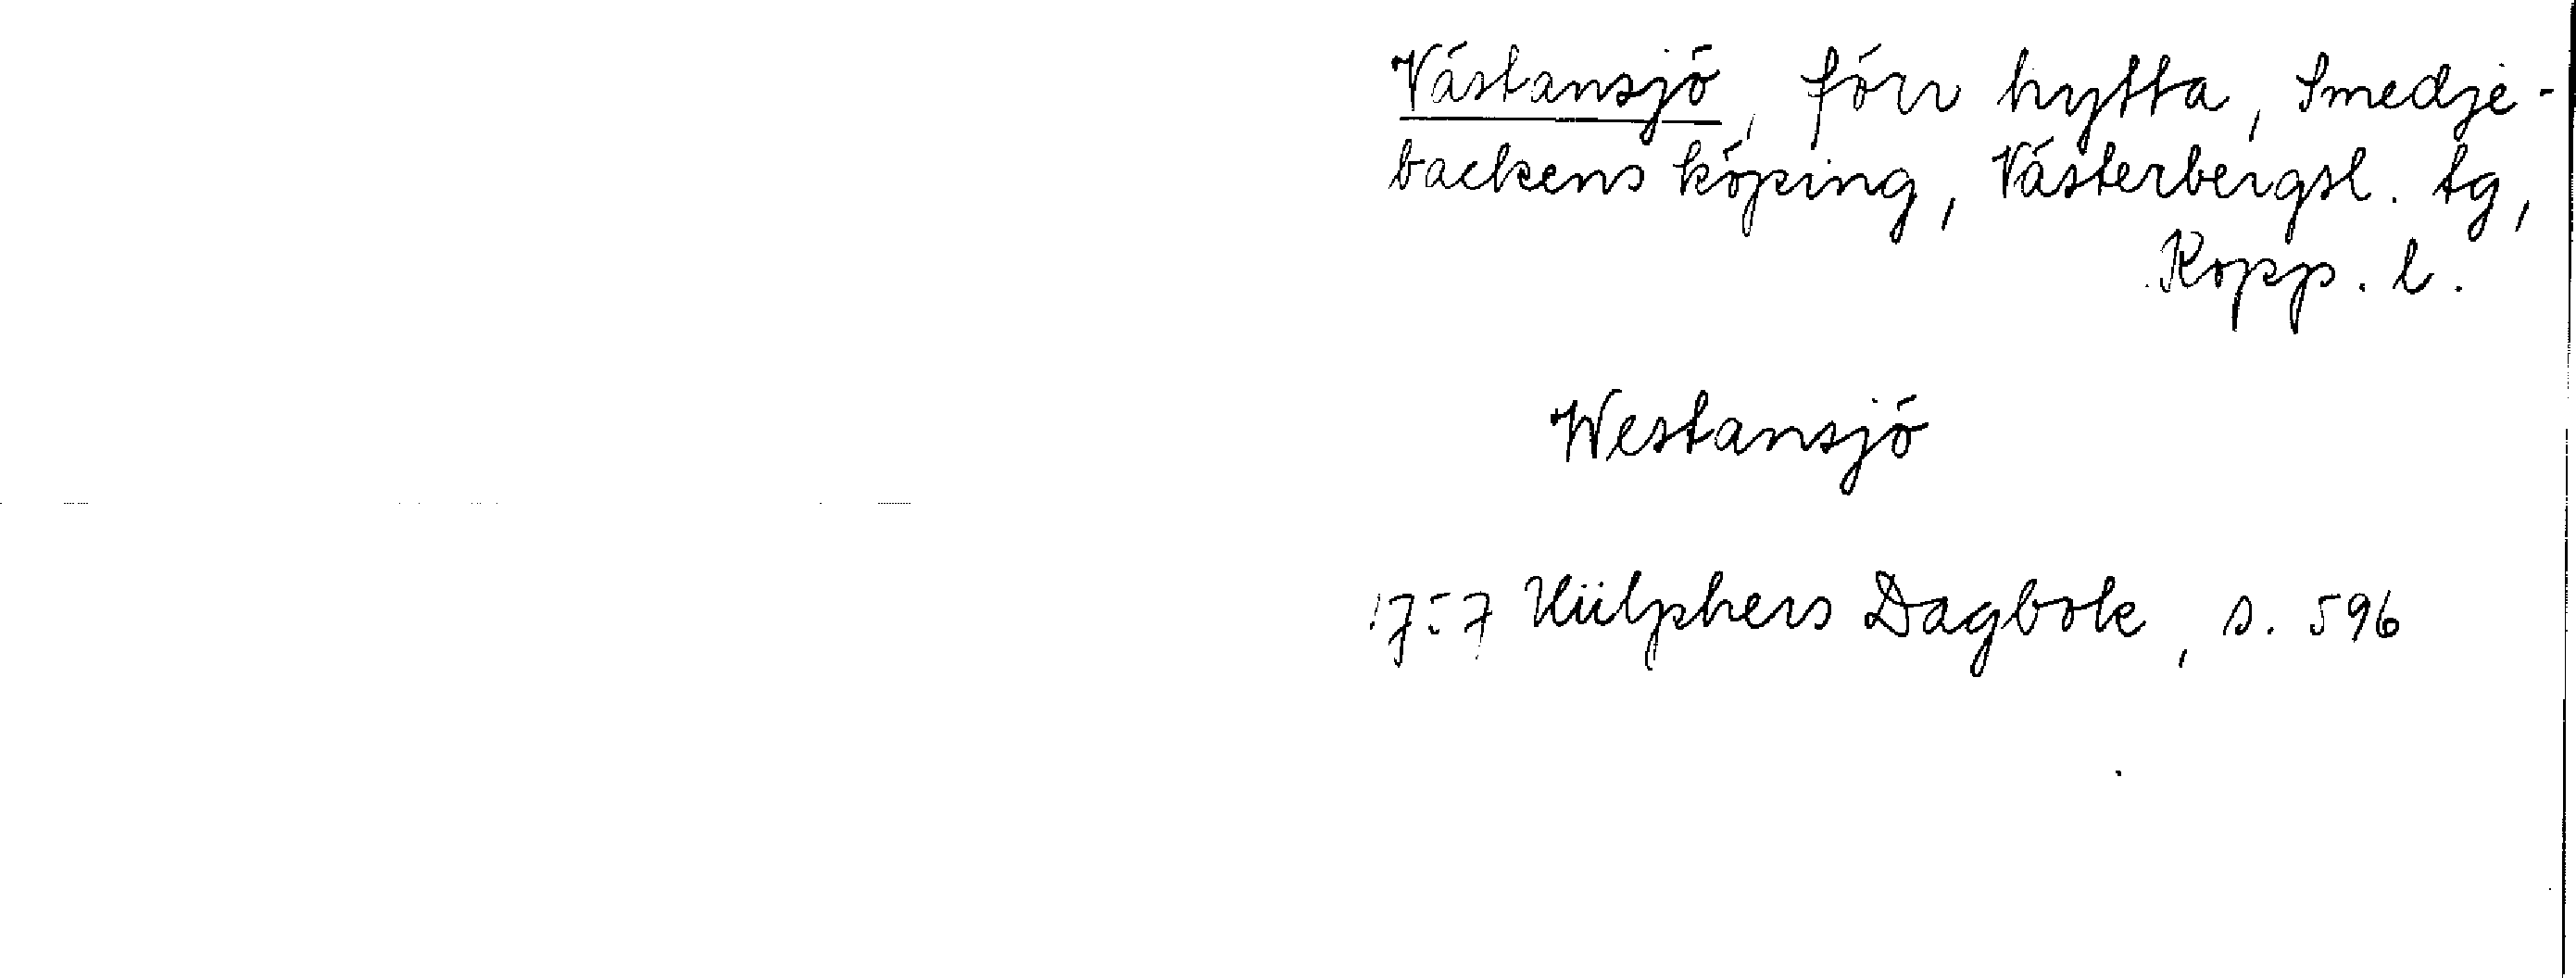 Västansjö, förr hytta, Smedje-
backens köping, Västerbergsl. tg,
Kopp. l.
Westansjö
1757 Hülphers Dagbok, s. 596